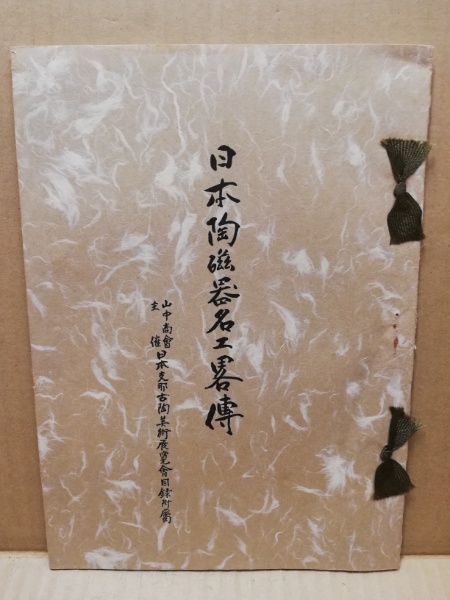 日本陶磁器名工畧傳
山中商會主催日本支那古陶美術展覽會目錄附屬